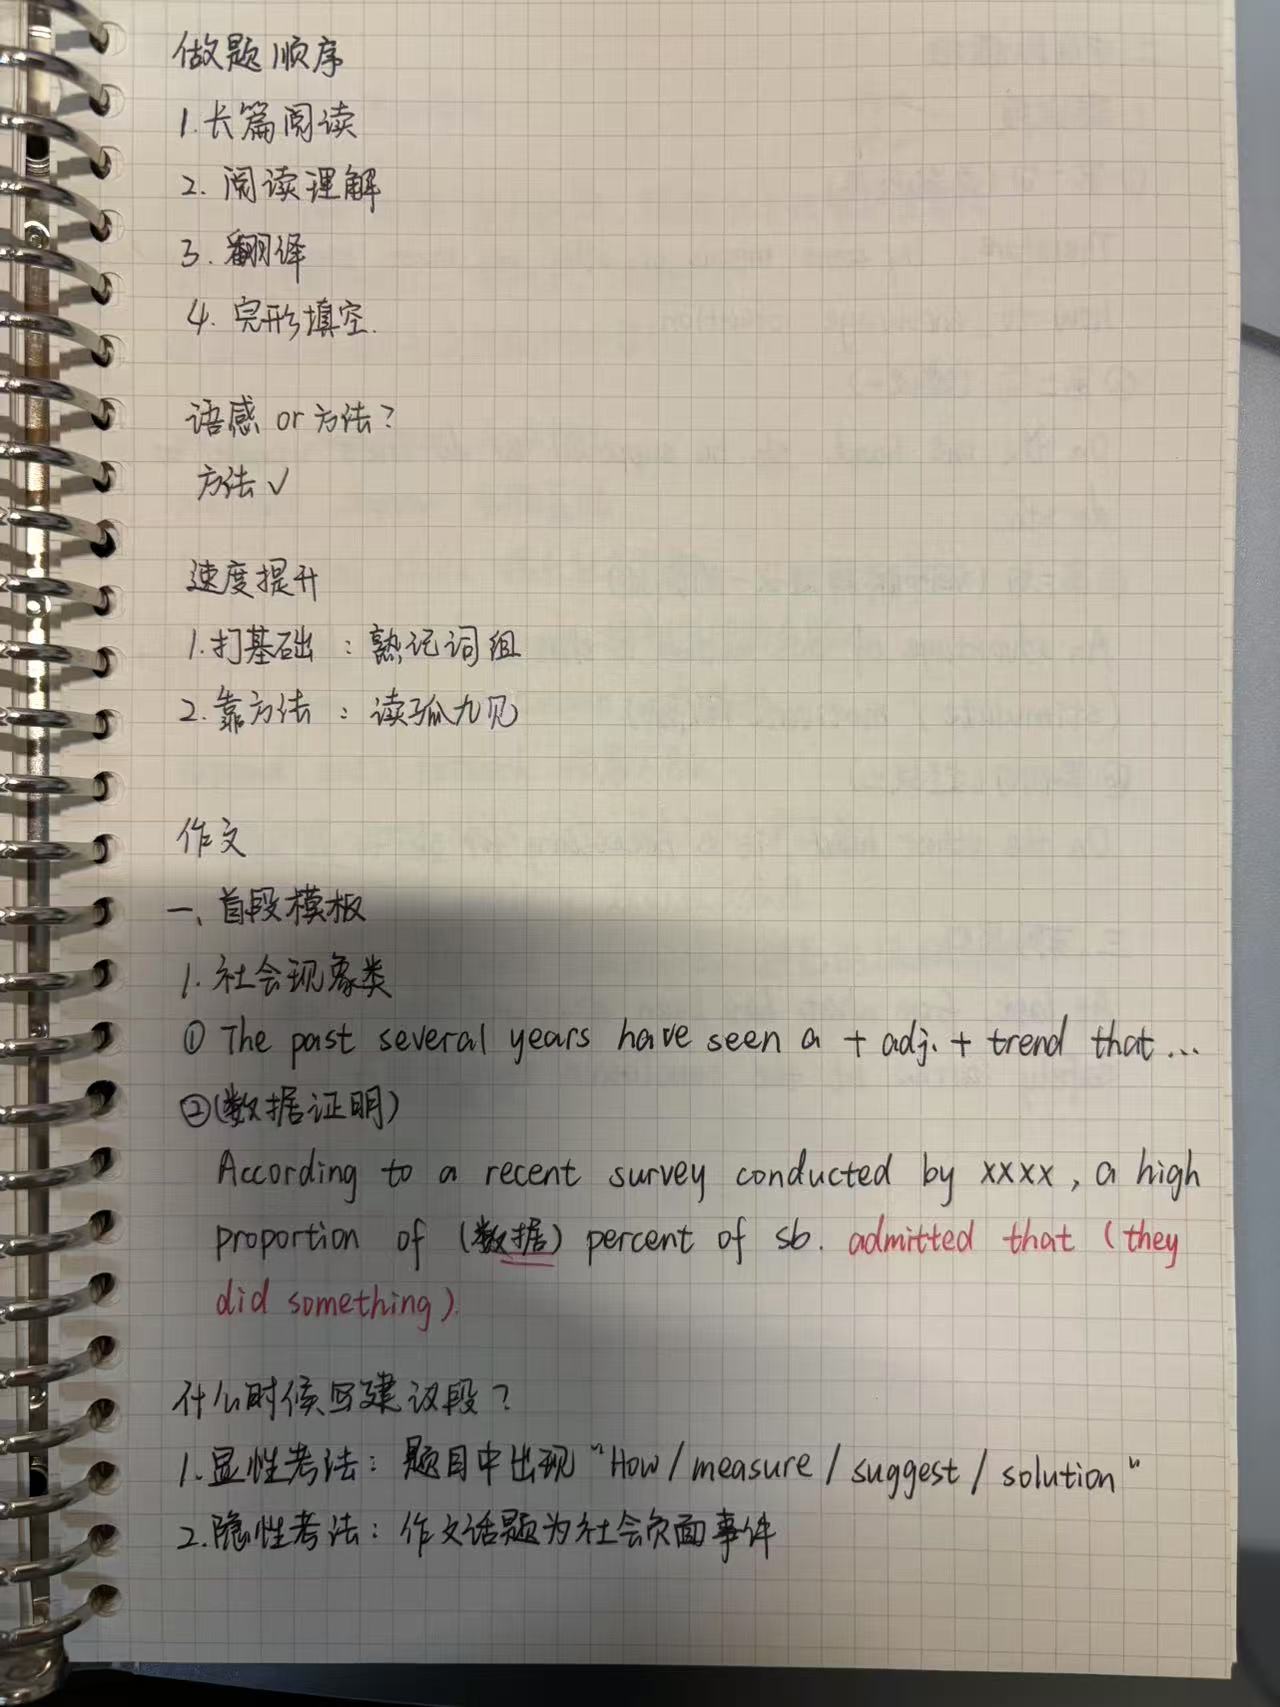 做题顺序
1.长篇阅读
2.阅读理解
3.翻译
4.完形填空.
语感 or 方法？
方法√
速度提升
1.打基础：熟记词组
2.靠方法：读孤九见
作文
一、首段模板
1.社会现象类
① The past several years have seen a + adj. + trend that...
②(数据证明)
According to a recent survey conducted by xxxx, a high
proportion of (数据) percent of sb. admitted that (they
did something).
什么时候写建议段？
1.显性考法：题目中出现“How/measure/suggest/solution”
2.隐性考法：作文话题为社会负面事件